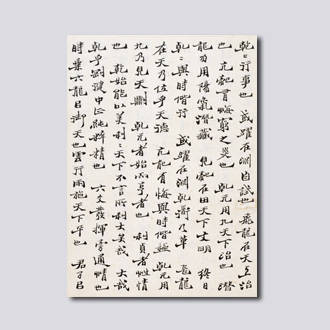 乾〻行事也 或躍在淵自試也 飛龍在天上治
也 亢龍有悔窮之災也 乾元用九天下治也 潛
龍勿用陽氣潛藏 見龍在田天下文明 終日
乾〻與時偕行 或躍在淵乾道乃革 飛龍
在天乃位乎天德 亢龍有悔與時偕極 乾元用
九乃見天則 乾元者始而亨者也 利貞者性情
也 乾始能以美利〻天下不言所利大矣哉 大哉
乾乎剛健中正純粹精也 六爻發揮旁通情也
時乘六龍以御天也雲行雨施天下平也 君子以